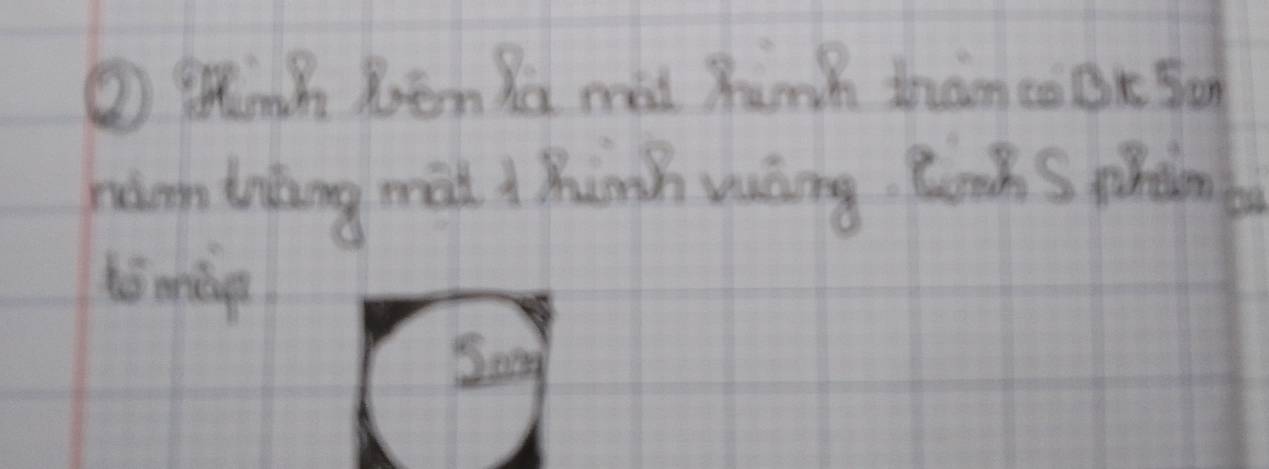 ② Hình bên là một hình tròn có BK 5cm
nằm trong một 1 hình vuông. Tính S phần
tô màu
5cm